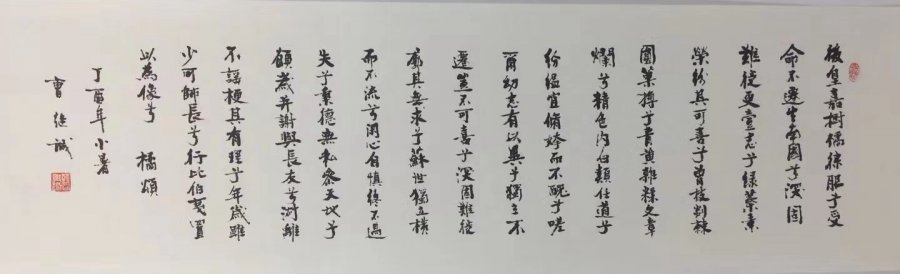 後皇嘉樹橘徠服兮受
命不遷生南國兮深固
難徙更壹志兮綠葉素
榮紛其可喜兮曾枝剡棘
圓菓摶兮青黃雜糅文章
爛兮精色內白類任道兮
紛縕宜脩姱而不醜兮嗟
爾幼志有以異兮獨立不
遷豈不可喜兮深固難徙
廓其無求兮蘇世獨立橫
而不流兮閉心自慎終不過
失兮秉德無私參天地兮
願歲并謝與長友兮淑離
不淫梗其有理兮年歲雖
少可師長兮行比伯夷置
以為像兮 橘頌
丁酉年小暑
曹继誠